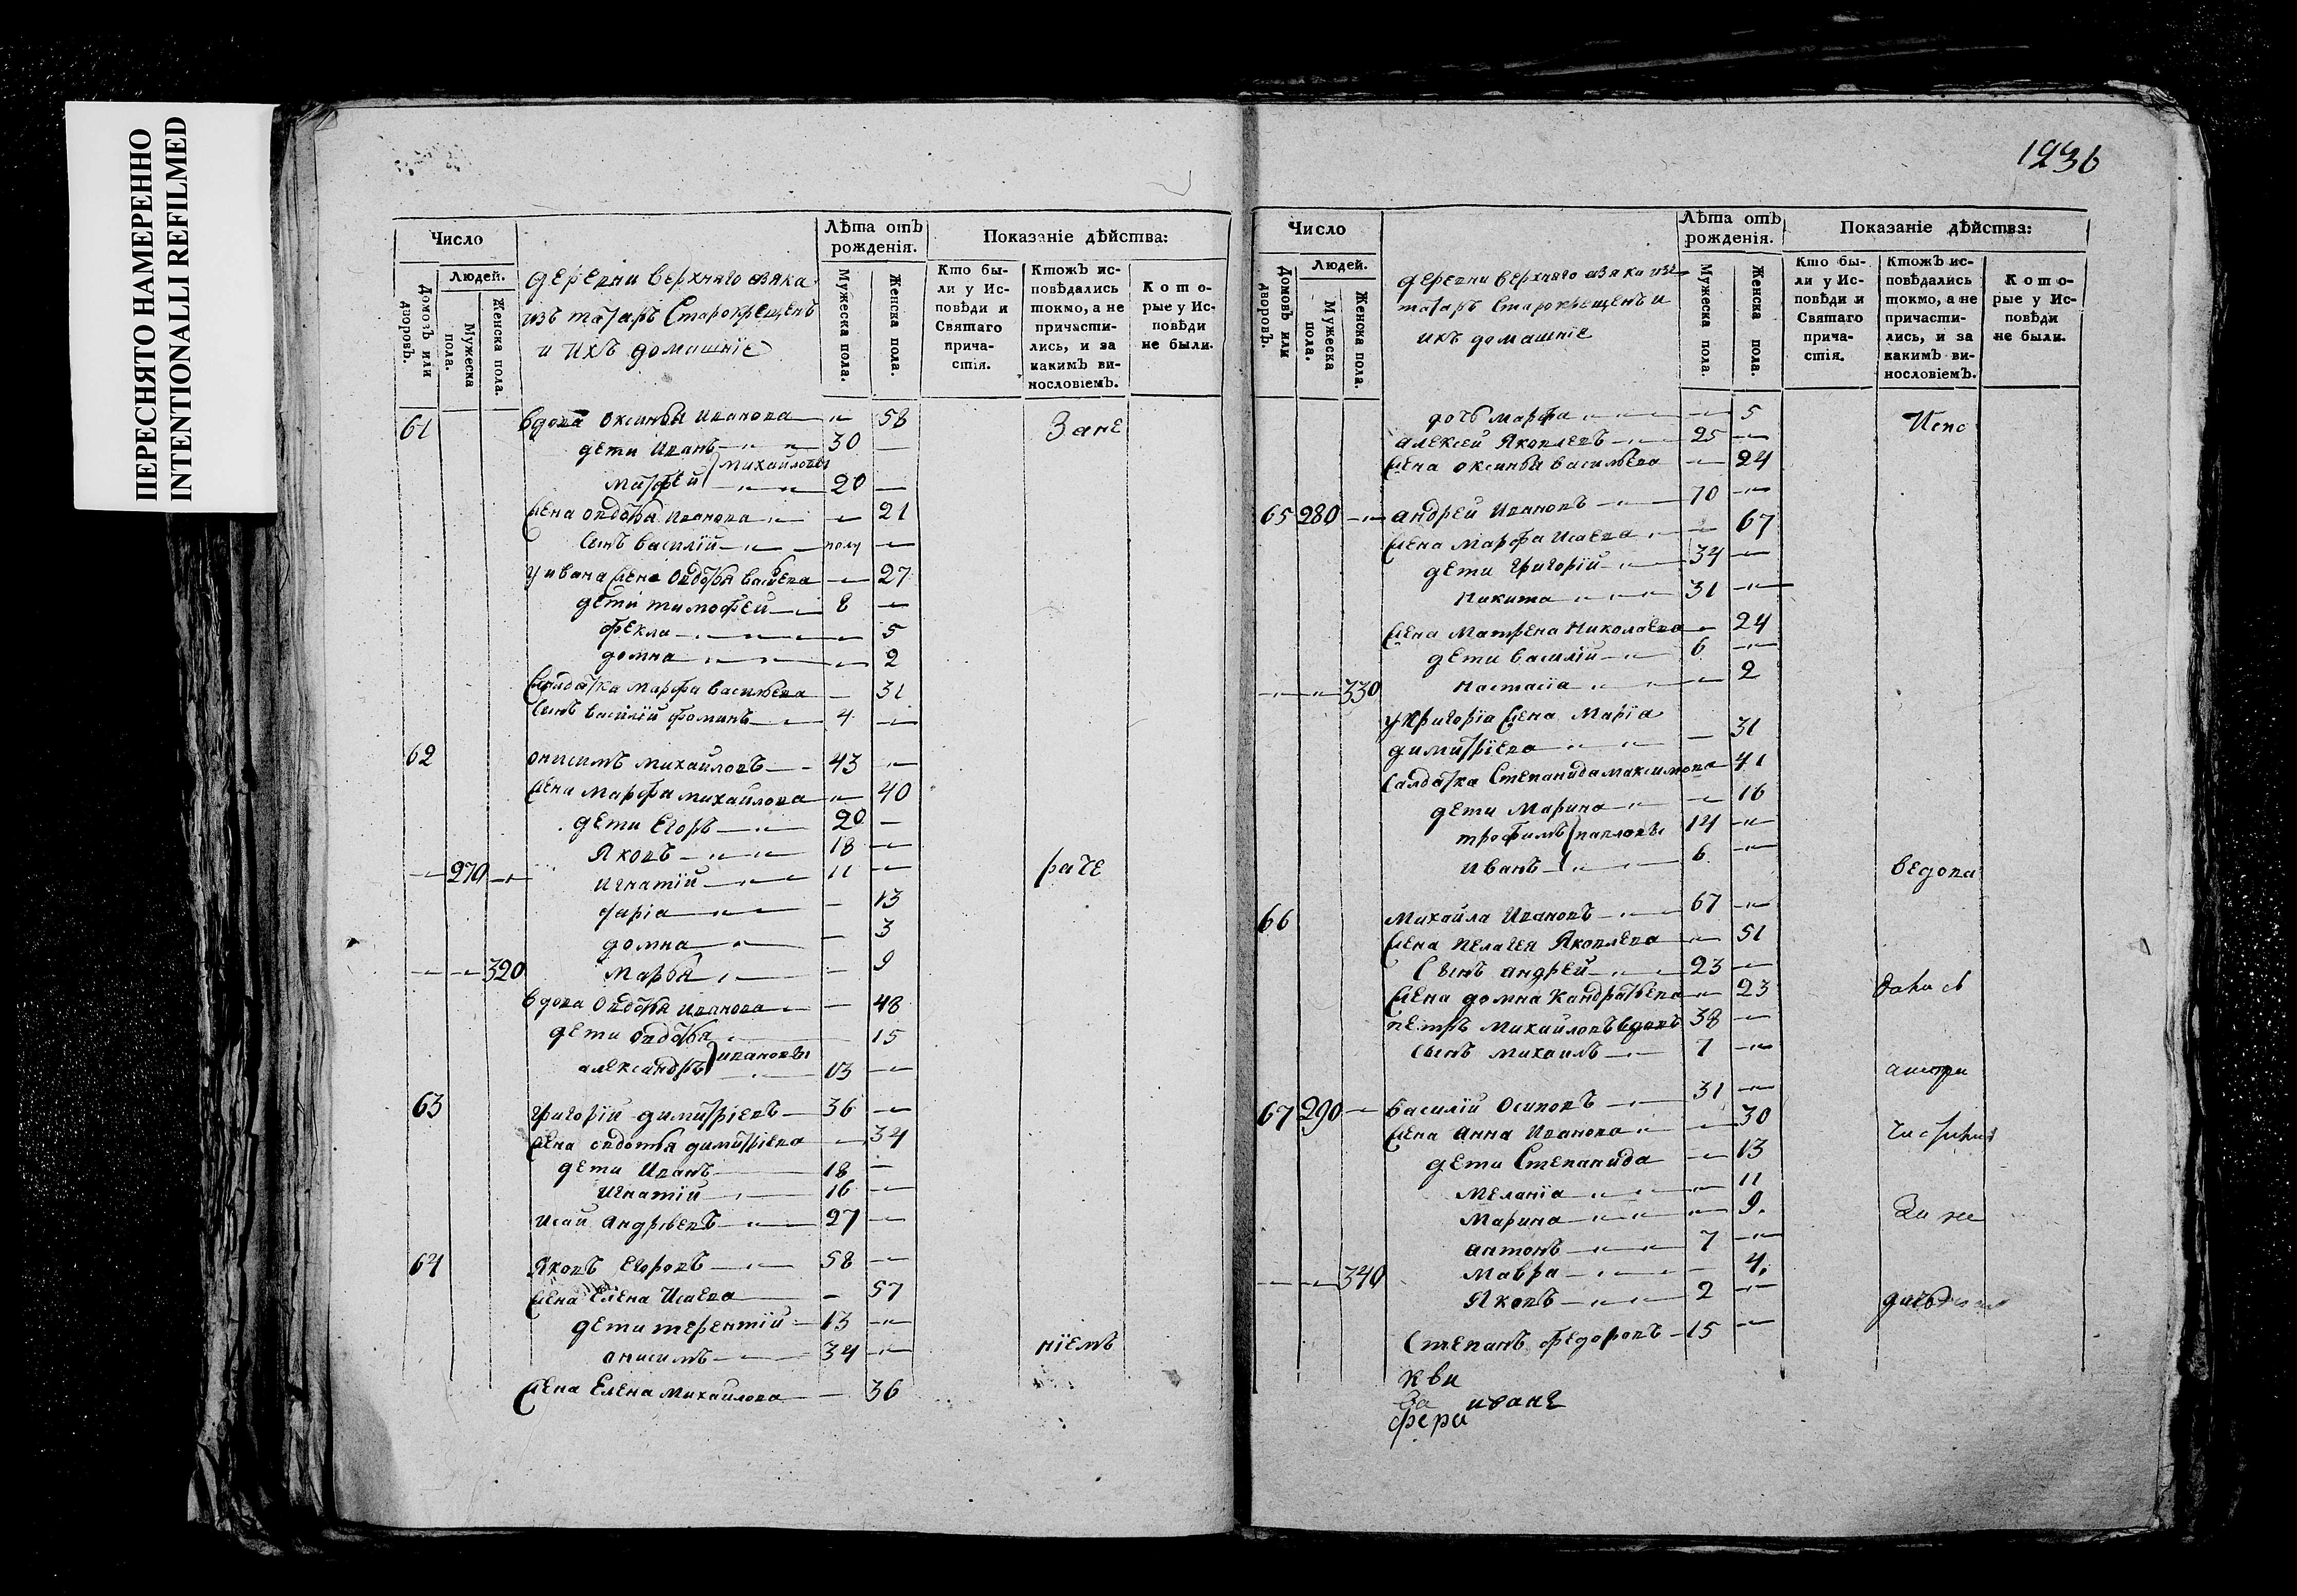 ПЕРЕСНЯТО НАМЕРЕННО
INTENTIONALLI REFILMED
Число
Людей.
Домовъ или дворовъ.
Мужеска пола.
Женска пола.
деревни верхняго
изъ татаръ Старокрещенъ
и ихъ домашніе
Лѣта отъ рожденія.
Мужеска пола.
Женска пола.
Показаніе дѣйства:
Кто бы-
ли у Ис-
повѣди и
Святаго
прича-
стія.
Ктожъ ис-
повѣдались
токмо, а не
причасти-
лись, и за
какимъ ви-
нословіемъ.
Кото-
рые у Ис-
повѣди
не были.
61 вдова Оксинья Иванова 58 Зане
дети Иванъ 30
Михайловы
Матфей 20
жена Овдотья Иванова 21
сынъ василій полу
у ивана жена Овдотья 27
дети тимофей 8
фекла 5
домна 2
салдатка марфа васильева 31
сынъ василій фоминъ 4
62 онисимъ михайловъ 43
жена марфа михайлова 40
дети Егоръ 20
Яковъ 18
270 игнатій 11 раче
дарія 13
домна 3
320 марья 9
вдова Овдотья иванова 48
дети овдотья 15
ивановы
александръ 13
63 григорій димитріевъ 36
жена овдотья димитріева 34
дети Иванъ 18
игнатій 16
исай Андрѣевъ 27
64 Яковъ Егоровъ 58
жена Елена Исаева 57
дети терентій 13
онисимъ 34 ніемъ
жена Елена михайлова 36
1236
Число
Людей.
Домовъ или дворовъ.
Мужеска пола.
Женска пола.
деревни верхняго изъ
татаръ Старокрещенъ и
ихъ домашніе
Лѣта отъ рожденія.
Мужеска пола.
Женска пола.
Показаніе дѣйства:
Кто бы-
ли у Ис-
повѣди и
Святаго
прича-
стія.
Ктожъ ис-
повѣдались
токмо, а не
причасти-
лись, и за
какимъ ви-
нословіемъ.
Кото-
рые у Ис-
повѣди
не были.
дочь марфа 5 Испо
алексей Яковлевъ 25
жена оксинья васильева 24
65 280 андрей Ивановъ 70
жена марфа Исаева 67
дети григорій 34
Никита 31
жена матрена Николаева 24
дети василій 6
330 настасіа 2
у григоріа жена Маріа
димитріева 31
салдатка Степанида максимова 41
дети Марина 16
трофимъ павловы 14
иванъ 6 ведова
66 михайла Ивановъ 67
жена пелагея Яковлева 51
сынъ андрей 23
жена домна кандратьева 23
петръ михайловъ вдовъ 38
сынъ михаилъ 7
67 290 василій Осиповъ 31
жена Анна Иванова 30
дети Степанида 13
меланіа 11
марина 9
антонъ 7
340 мавра 4
Яковъ 2
Степанъ федоровъ 15